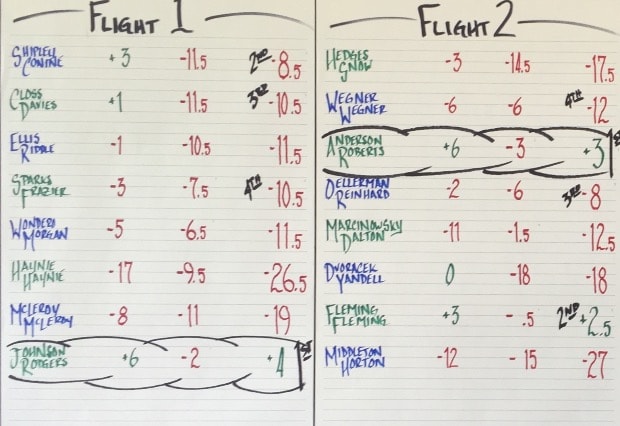 FLIGHT 1
SHIPLEY CONINE +3 -11.5 2ND -8.5
CLOSS DAVIES +1 -11.5 3RD -10.5
ELLIS RIDDLE -1 -10.5 -11.5
SPARKS FRAZIER -3 -7.5 4TH -10.5
WONDERS MORGAN -5 -6.5 -11.5
HAYNIE HAYNIE -17 -9.5 -26.5
MCLEROY MCLEROY -8 -11 -19
JOHNSON RODGERS +6 -2 +4 1ST
FLIGHT 2
HEDGES GNOW -3 -14.5 -17.5
WEGNER WEGNER -6 -6 4TH -12
ANDERSON ROBERTS +6 -3 +3
DELLERMAN REINHARD -2 -6 3RD -8
MARCINOWSKY DALTON -11 -1.5 -12.5
DVORACEK YANDELL 0 -18 -18
FLEMING FLEMING +3 -.5 2ND +2.5
MIDDLETON HORTON -12 -15 -27